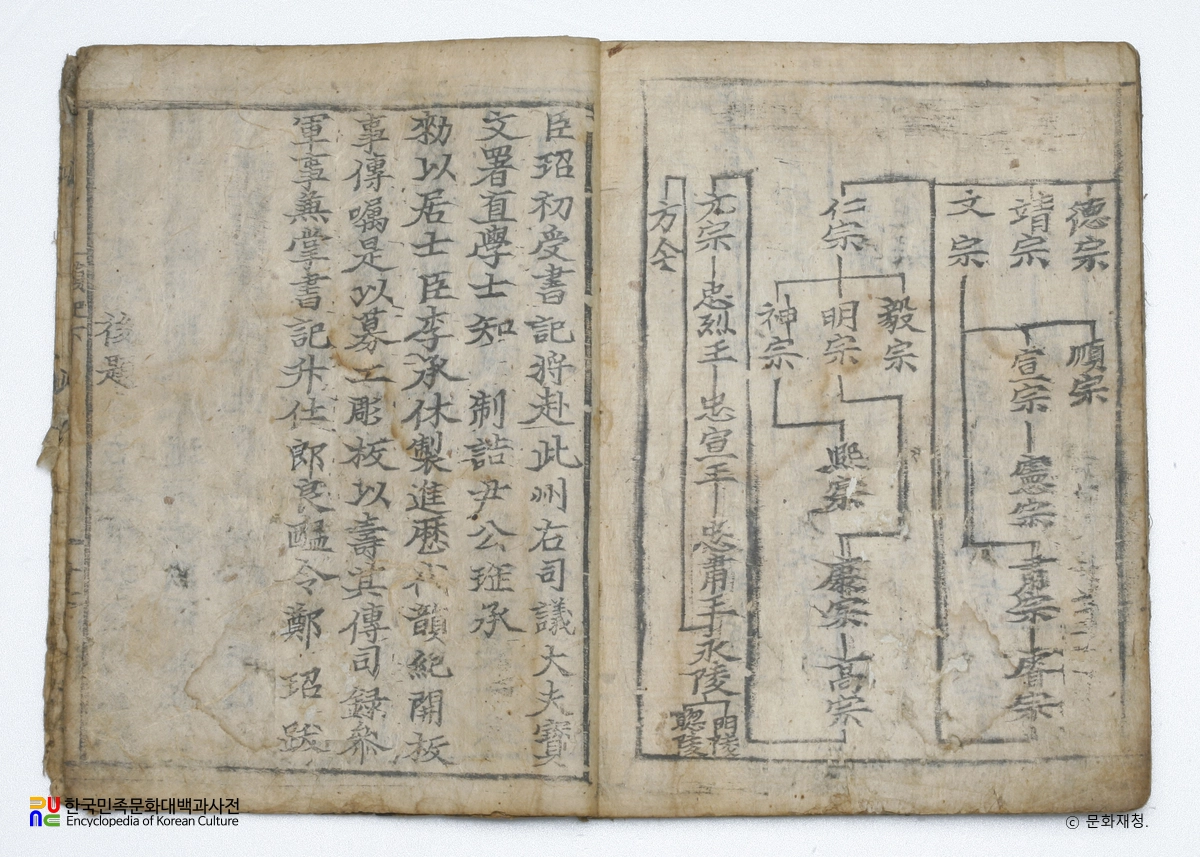 德宗
靖宗
文宗
順宗
宣宗
憲宗
肅宗
睿宗
仁宗
毅宗
明宗
神宗
熙宗
康宗
高宗
元宗
忠烈王
忠宣王
忠肅王
永陵
明陵
聰陵
方今
臣玿初受書記將赴此州右司議大夫寶
文署直學士知 制誥尹公珤承
勑以居士臣李承休製進歷代韻紀開板
事傳嘱是以募工彫板以壽其傳司録叅
軍事兼掌書記升仕郎良醞令鄭玿跋
後題
한국민족문화대백과사전
Encyclopedia of Korean Culture
ⓒ 문화재청.